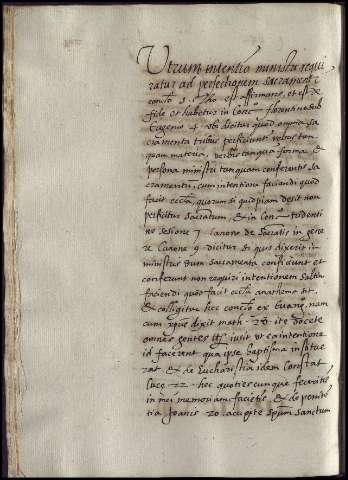 Utrum intentio ministri requi
ratur ad perfectionem sacramenti
conclo s. Tho. est affirmans, et est de
fide et habetur in Conc. florentino sub
Eugenio 4 ubi dicitur quod omnia sa
cramenta tribus perficiuntur rebus tan
quam materia, verbis tanquam forma et
persona ministri tanquam conferentis sa
cramentum, cum intentione faciendi quod
facit ecclia, quorum si quidpiam desit non
perficitur sacratum, & in Conc. tridenti
no sesione 7 canone de Sacratis in gene
re Canone 9 dicitur si quis dixerit in
ministris dum sacramenta conficiunt et
conferunt non requiri intentionem saltem
faciendi quod facit ecclia anathema sit.
& colligitur hec conclo ex Evang. nam
cum xpus dixit math. 28 ite docete
omnes gentes iusit ut ea intentione
id facerent qua ipse baptisma instituε
rat & de Eucharistia idem Constat
Luce 22 hec quotiescunque feceritis
in mei memoriam facietis, & de penite
tia Joanis 20 accipite spum sanctum